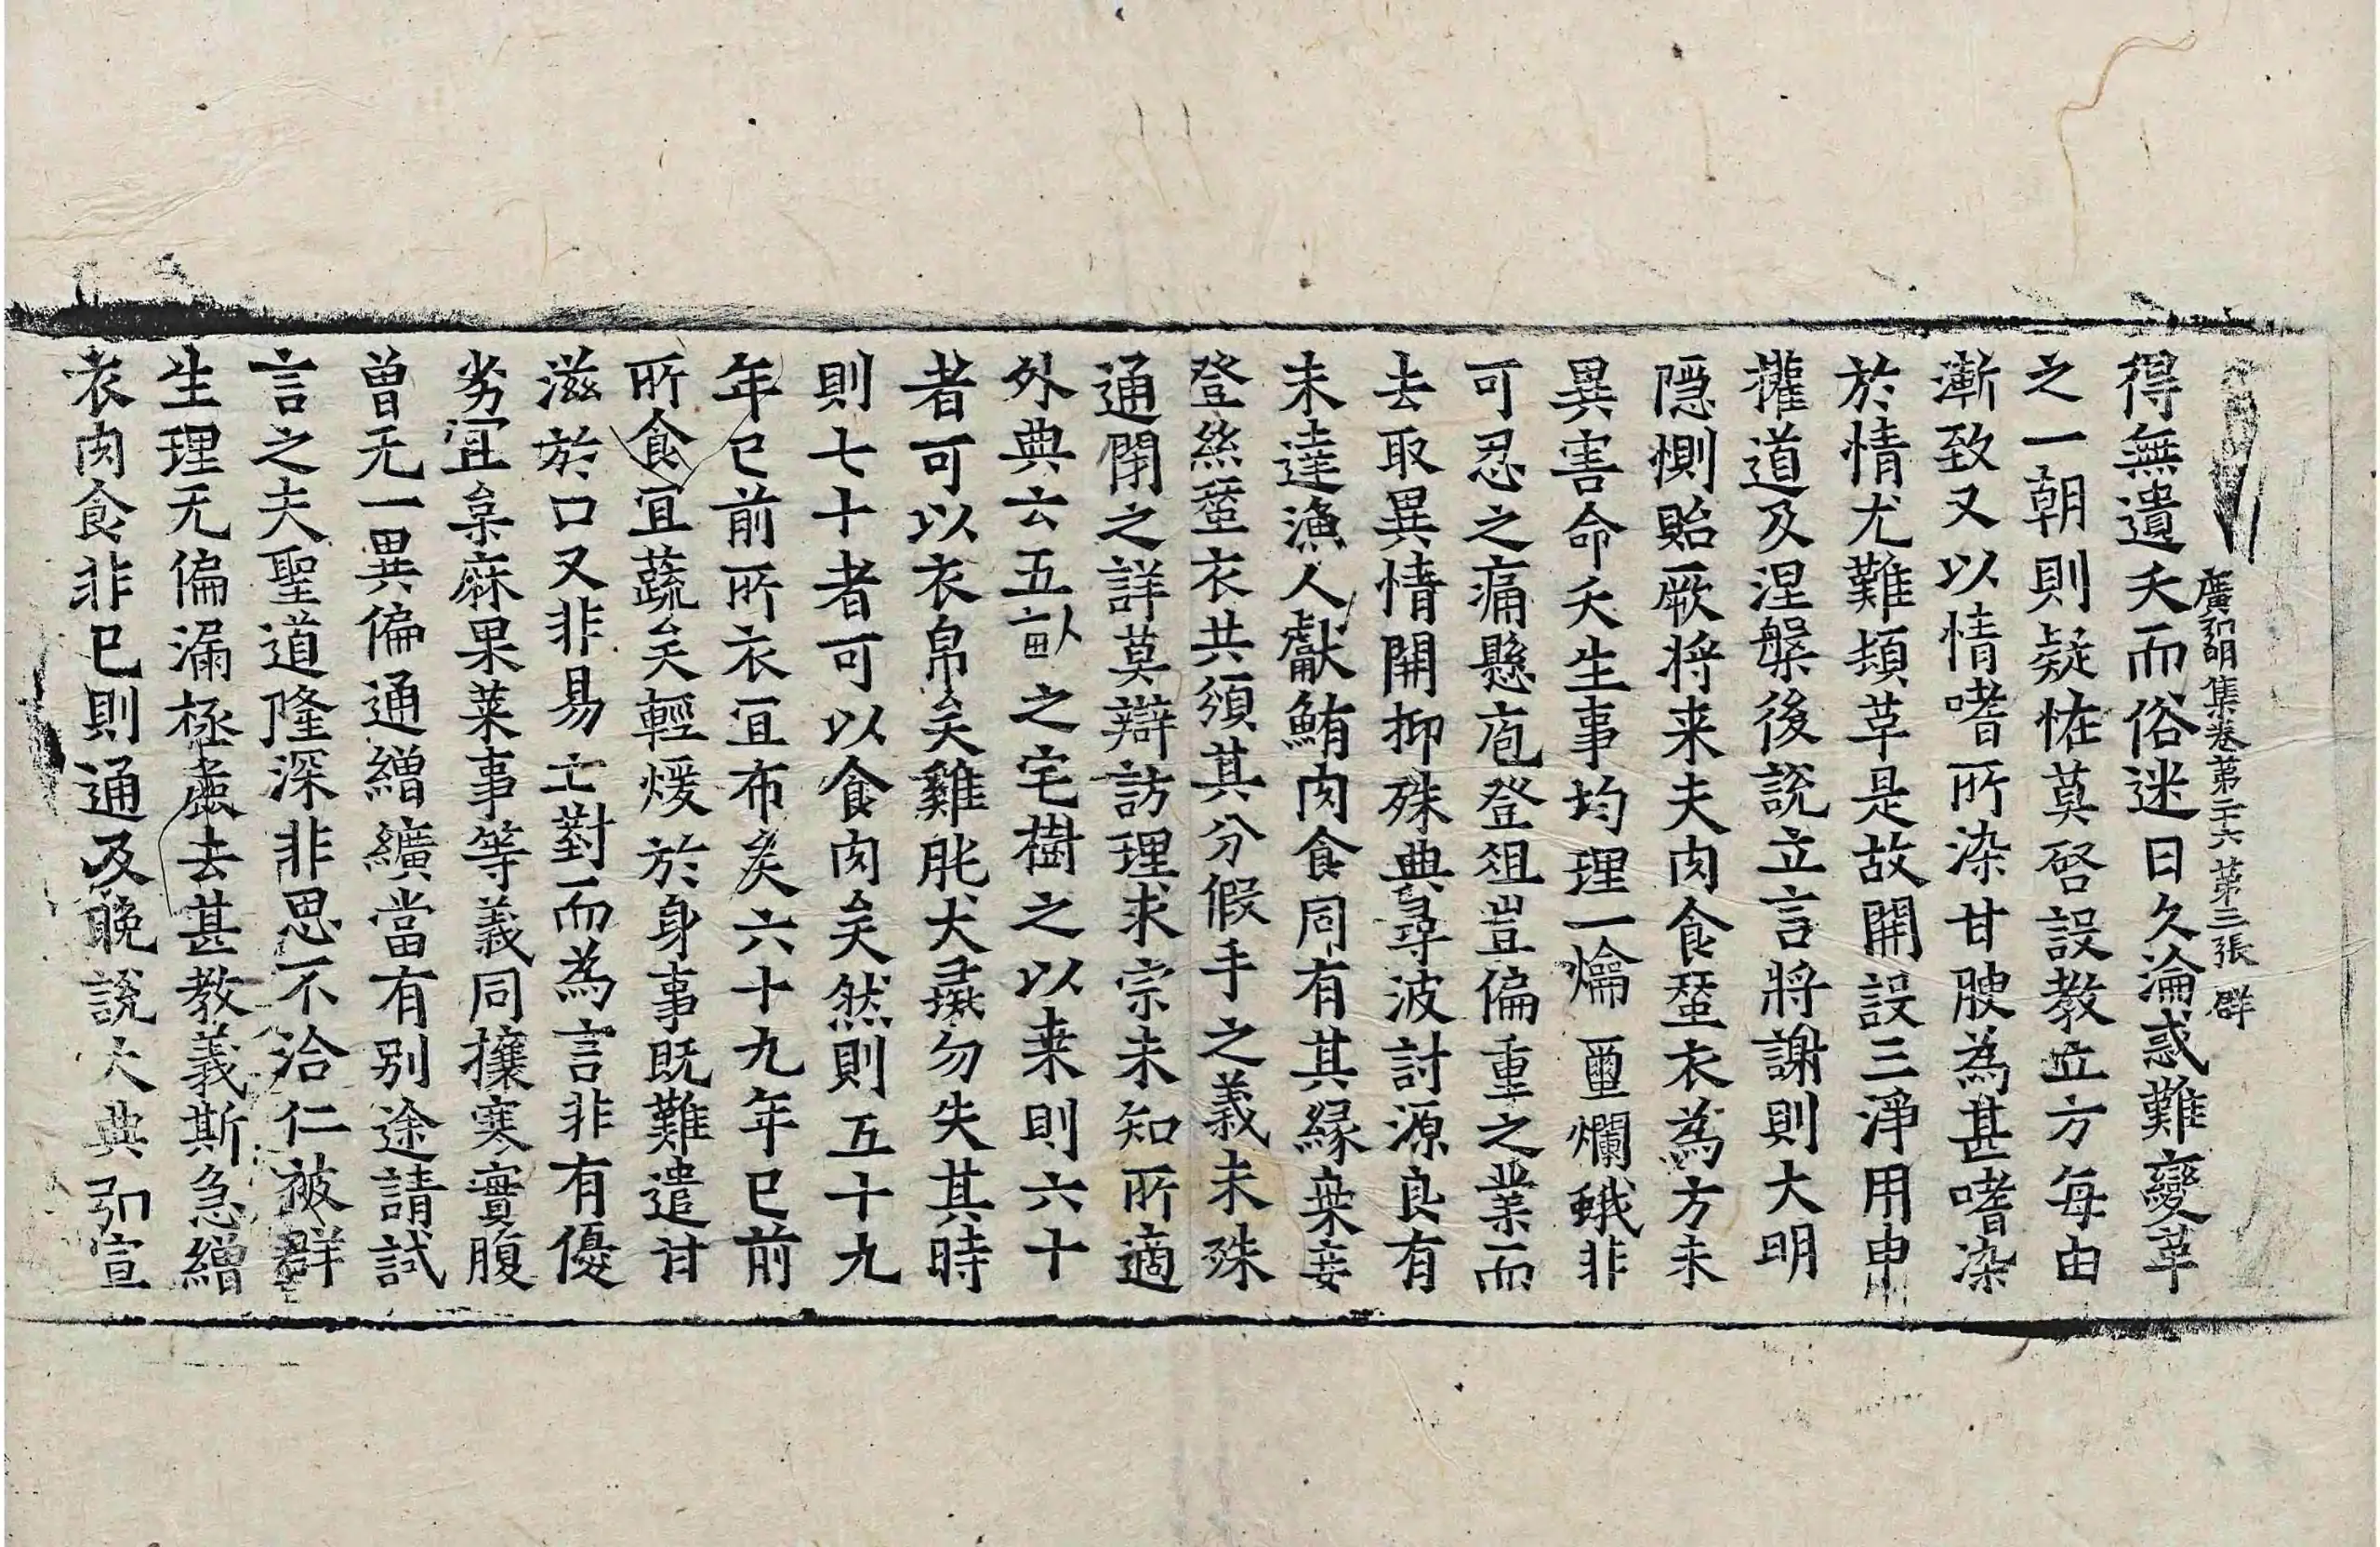 廣弘明集卷第二十六 第三張 群
得無遺夭而俗迷日久淪惑難變革
之一朝則疑怪莫啓設教立方每由
漸致又以情嗜所染甘腴為甚嗜染
於情尤難頓革是故開設三淨用申
權道及涅槃後說立言將謝則大明
隱惻貽厥將来夫肉食蚕衣為方未
異害命夭生事均理一爚𠁅爛蛾非
可忍之痛懸庖登俎豈偏重之業而
去取異情開抑殊典尋波討源良有
未達漁人獻鮪肉食同有其緣枲妾
登絲蚕衣共須其分假手之義未殊
通閉之詳莫辯訪理求宗未知所適
外典云五畝之宅樹之以桒則六十
者可以衣帛矣雞肫犬彘勿失其時
則七十者可以食肉矣然則五十九
年已前所衣宜布矣六十九年已前
所食宜蔬矣輕煖於身事既難遣甘
滋於口又非易亡對而為言非有優
劣宜枲麻果菜事等義同攘寒實腹
曾无一異偏通繒纊當有别途請試
言之夫聖道隆深非思不洽仁被群
生理无偏漏拯麁去甚教義斯急繒
衣肉食非已則通及晚說大典弘宣